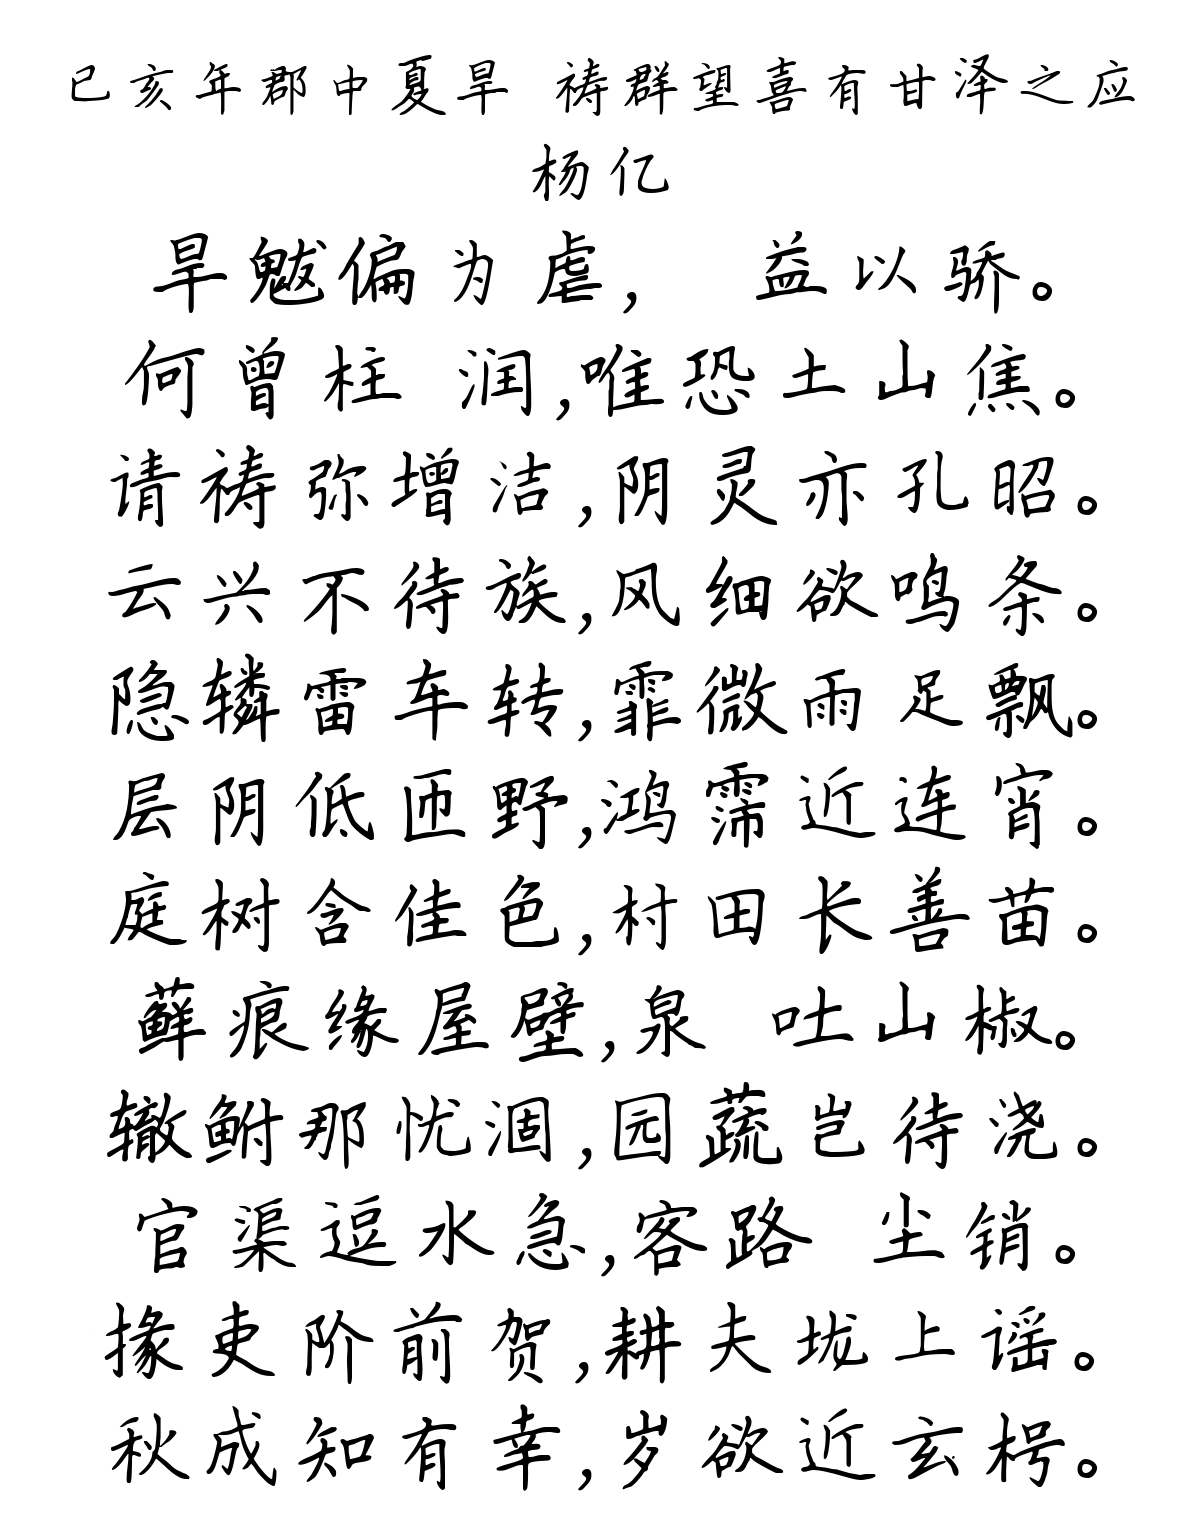 已亥年郡中夏旱 祷群望喜有甘泽之应
杨亿
旱魃偏为虐, 益以骄。
何曾柱 润,唯恐土山焦。
请祷弥增洁,阴灵亦孔昭。
云兴不待族,风细欲鸣条。
隐辚雷车转,霏微雨足飘。
层阴低匝野,鸿霈近连宵。
庭树含佳色,村田长善苗。
藓痕缘屋壁,泉 吐山椒。
辙鲋那忧涸,园蔬岂待浇。
官渠逗水急,客路 尘销。
掾吏阶前贺,耕夫垅上谣。
秋成知有幸,岁欲近玄枵。